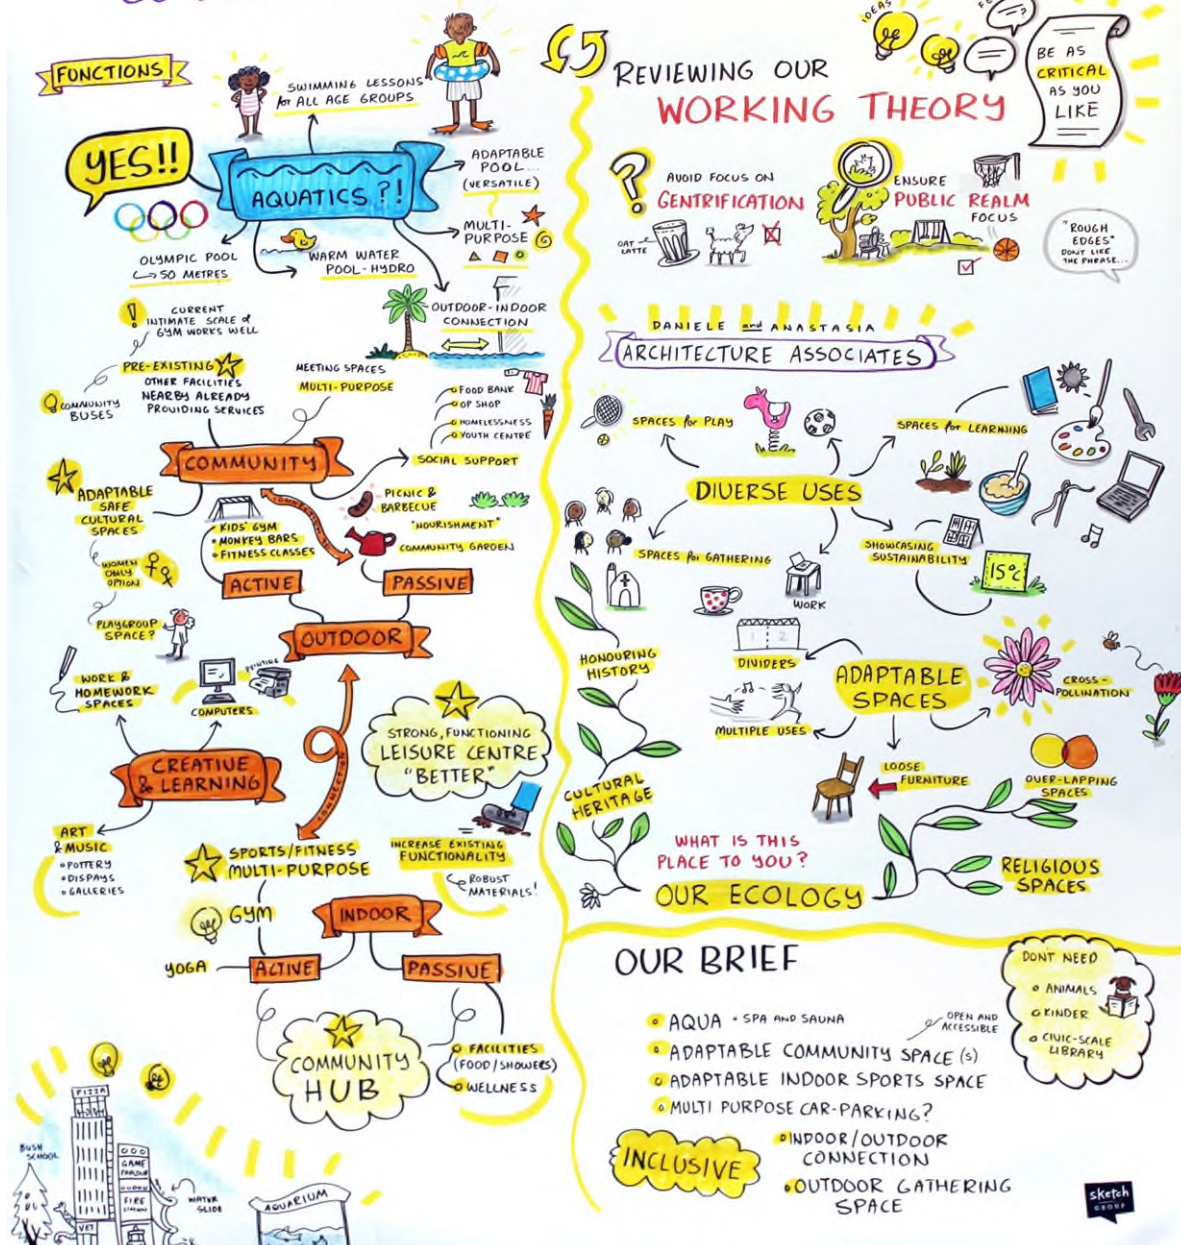 FUNCTIONS
SWIMMING LESSONS
for ALL AGE GROUPS
YES!!
AQUATICS?!
ADAPTABLE
POOL...
(VERSATILE)
MULTI-
PURPOSE
OLYMPIC POOL
50 METRES
WARM WATER
POOL-HYDRO
OUTDOOR-INDOOR
CONNECTION
!
CURRENT
INTIMATE SCALE of
GYM WORKS WELL
PRE-EXISTING
OTHER FACILITIES
NEARBY ALREADY
PROVIDING SERVICES
COMMUNITY
BUSES
MEETING SPACES
MULTI-PURPOSE
FOOD BANK
OP SHOP
HOMELESSNESS
YOUTH CENTRE
SOCIAL SUPPORT
COMMUNITY
ADAPTABLE
SAFE
CULTURAL
SPACES
WOMEN
ONLY
OPTION
PLAYGROUP
SPACE?
KIDS' GYM
MONKEY BARS
FITNESS CLASSES
PICNIC &
BARBECUE
"NOURISHMENT"
COMMUNITY GARDEN
ACTIVE
PASSIVE
OUTDOOR
WORK &
HOMEWORK
SPACES
COMPUTERS
PRINTING
CREATIVE
& LEARNING
ART
& MUSIC
POTTERY
DISPAYS
GALLERIES
STRONG, FUNCTIONING
LEISURE CENTRE
"BETTER"
CONNECTION
SPORTS/FITNESS
MULTI-PURPOSE
INCREASE EXISTING
FUNCTIONALITY
ROBUST
MATERIALS!
GYM
INDOOR
YOGA
ACTIVE
PASSIVE
COMMUNITY
HUB
FACILITIES
(FOOD/SHOWERS)
WELLNESS
PIZZA
BUSH
SCHOOL
GAME
PARLOUR
FIRE
STATION
VET
WATER
SLIDE
AQUARIUM
REVIEWING OUR
WORKING THEORY
IDEAS
?
BE AS
CRITICAL
AS YOU
LIKE
?
AVOID FOCUS ON
GENTRIFICATION
OAT
LATTE
ENSURE
PUBLIC REALM
FOCUS
"ROUGH
EDGES"
DONT LIKE
THE PHRASE...
DANIELE and ANASTASIA
ARCHITECTURE ASSOCIATES
SPACES for PLAY
SPACES for LEARNING
DIVERSE USES
SPACES for GATHERING
WORK
SHOWCASING
SUSTAINABILITY
15°C
HONOURING
HISTORY
1 2
DIVIDERS
ADAPTABLE
SPACES
CROSS-
POLLINATION
MULTIPLE USES
LOOSE
FURNITURE
OVER-LAPPING
SPACES
CULTURAL
HERITAGE
WHAT IS THIS
PLACE TO YOU?
OUR ECOLOGY
RELIGIOUS
SPACES
OUR BRIEF
AQUA • SPA AND SAUNA
OPEN AND
ACCESSIBLE
ADAPTABLE COMMUNITY SPACE(s)
ADAPTABLE INDOOR SPORTS SPACE
MULTI PURPOSE CAR-PARKING?
INCLUSIVE
INDOOR/OUTDOOR
CONNECTION
OUTDOOR GATHERING
SPACE
DONT NEED
ANIMALS
KINDER
CIVIC-SCALE
LIBRARY
sketch
GROUP